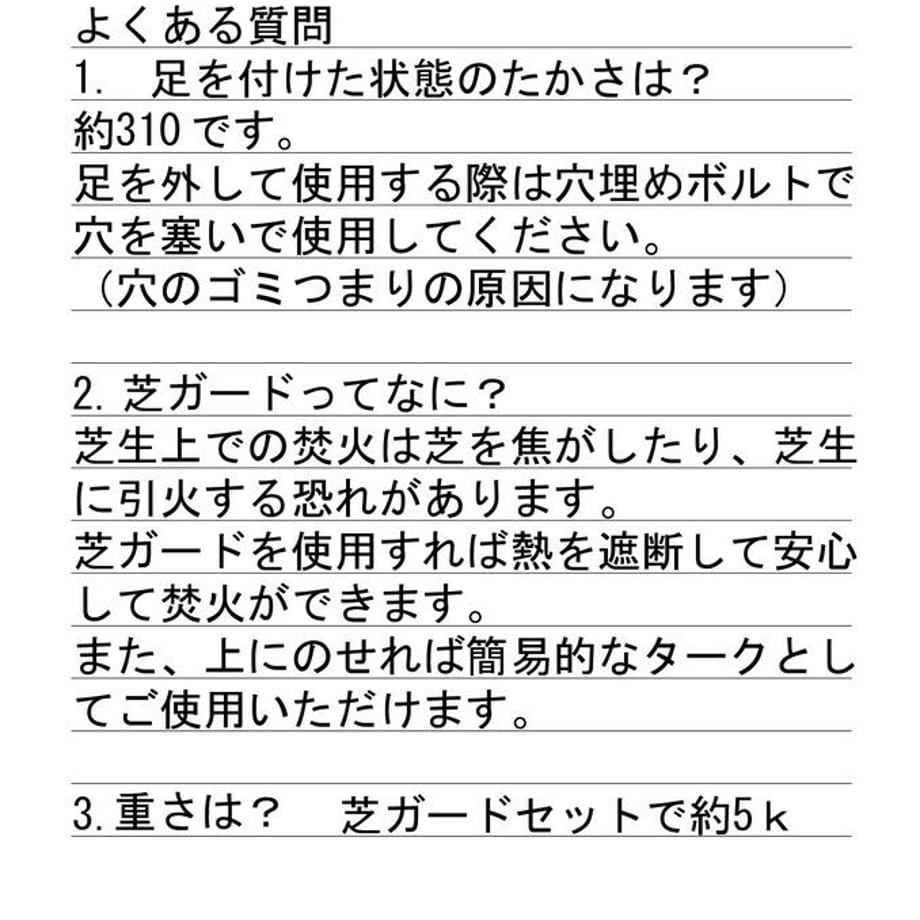 よくある質問
1.　足を付けた状態のたかさは？
約310です。
足を外して使用する際は穴埋めボルトで
穴を塞いで使用してください。
（穴のゴミつまりの原因になります）
2. 芝ガードってなに？
芝生上での焚火は芝を焦がしたり、芝生
に引火する恐れがあります。
芝ガードを使用すれば熱を遮断して安心
して焚火ができます。
また、上にのせれば簡易的なタークとし
てご使用いただけます。
3.重さは？　芝ガードセットで約5ｋ